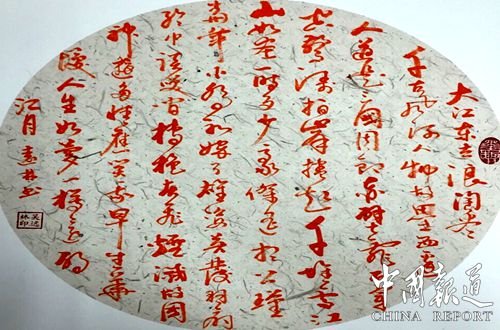 大江东去浪淘尽
千古风流人物故垒西边
人道是三国周郎赤壁乱石穿
空惊涛拍岸卷起千堆雪江
山如画一时多少豪杰遥想公瑾
当年小乔初嫁了雄姿英发羽扇
纶巾谈笑间樯橹灰飞烟灭故国
神游多情应笑我早生华
发人生如梦一樽还酹
江月 林书
中國報道
CHINA REPORT